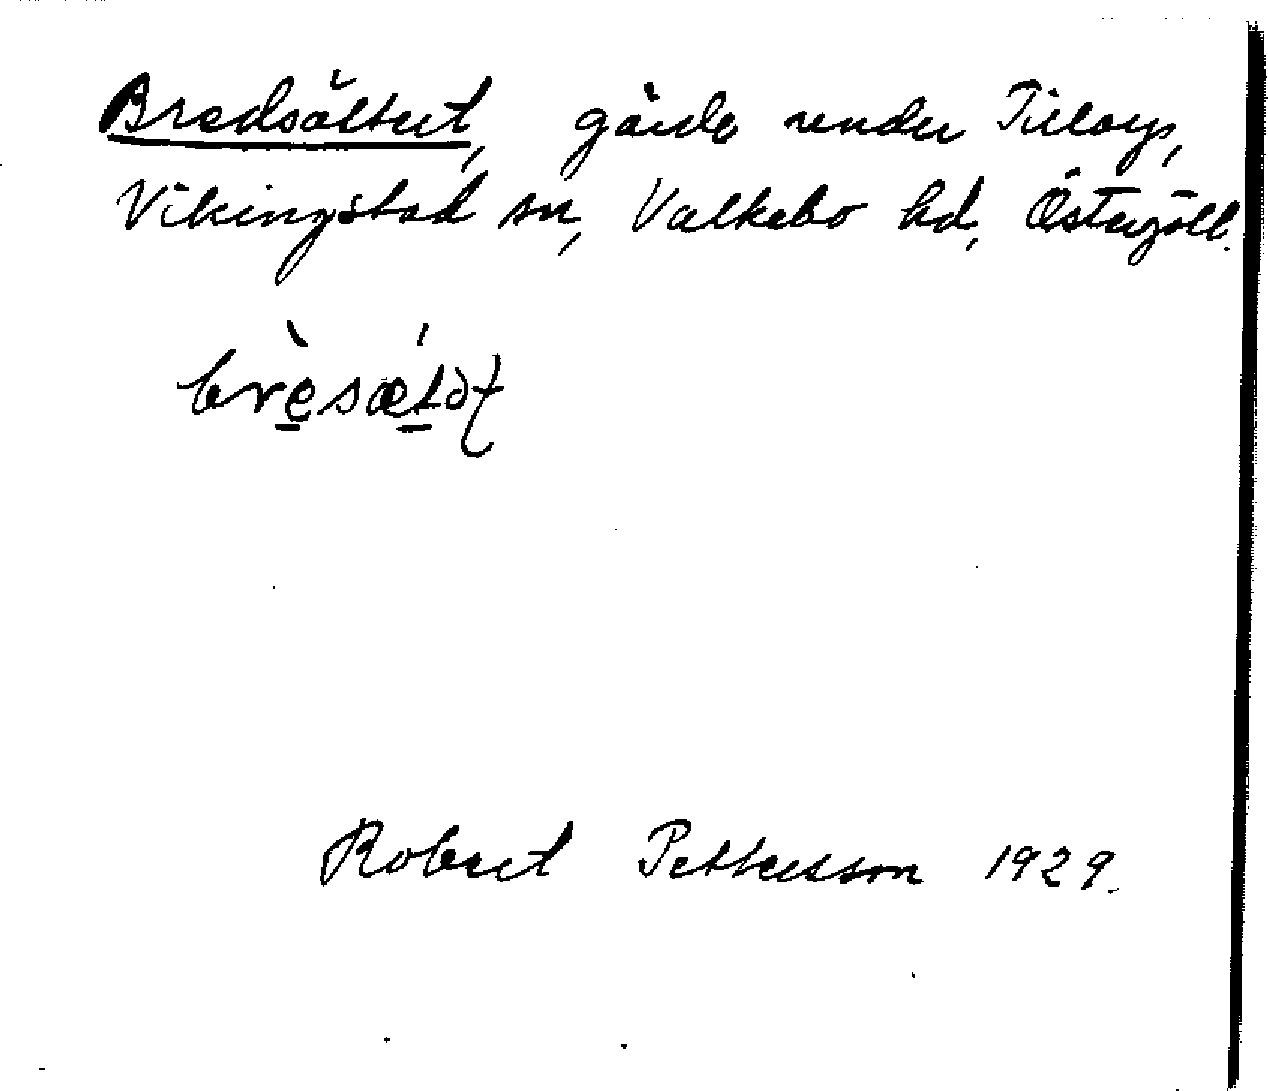 Bredsältet, gärde under Tillorp,
Vikingstad sn, Valkebo hd, Östergötl.
brèsǽltət
Robert Pettersson 1929.